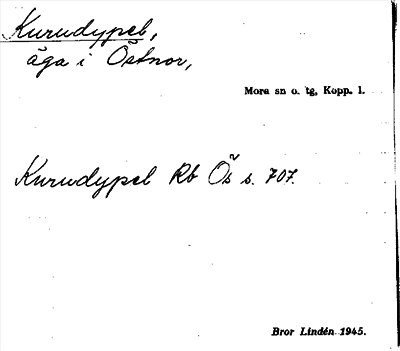 Kurudypeb,
äga i Östnor,
Mora sn o. tg, Kopp. l.
Kurudypeb Rb Ös s. 707.
Bror Lindén 1945.